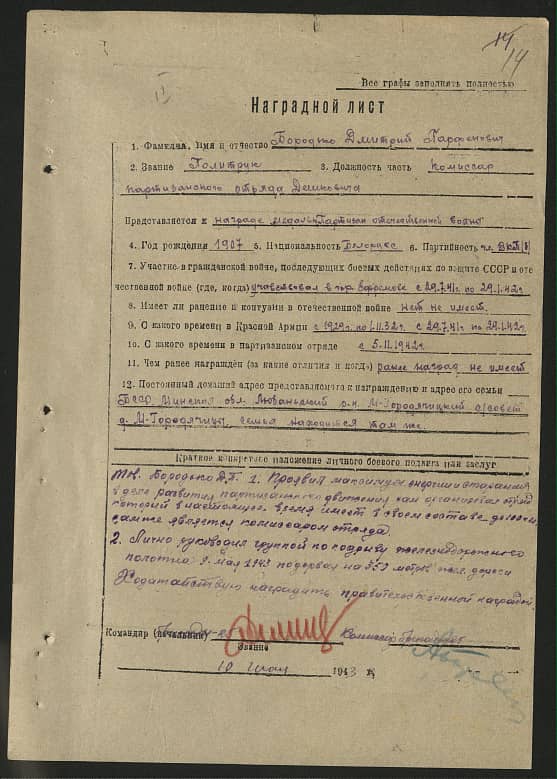 14
14
Все графы заполнять полностью
Наградной лист
1. Фамилия, имя и отчество Бородько Дмитрий Парфенович
2. Звание Политрук 3. Должность часть Комиссар
партизанского отряда
Представляется к награде медаль Партизан отечественной войны
4. Год рождения 1907 5. Национальность Белорус 6. Партийность чл. ВКП(б)
7. Участие в гражданской войне, последующих боевых действиях по защите СССР и оте
чественной войне (где, когда) участвовал в с 29.7.41г по 29.1.42г
8. Имеет ли ранение и контузии в отечественной войне нет не имеет.
9. С какого времени в Красной Армии с 1929г. по 1.11.32г. с 29.7.41г по 29.1.42г.
10. С какого времени в партизанском отряде с 5.11.1942г.
11. Чем ранее награждён (за какие отличия и когда) ранее наград не имеет
12. Постоянный домашний адрес представляемого к награждению и адрес его семьи
БССР. Минская обл. Любаньский р-н. М-Городятицкий с/совет
д. М-Городятичи семья находится там же.
Краткое конкретное изложение личного боевого подвига или заслуг
Тов. Бородько Д.П. 1. Проявил максимум энергии и старания
в деле развития партизанского движения как организовал отряд
который в настоящее время имеет в своем составе до
сам же является комиссаром отряда.
2. Лично руководил группой по подрыву железнодорожного
полотна 9. мая 1943 подорвал на 350 метров жел. дороги
Ходатайствую наградить правительственной наградой.
Командир (начальник) Комиссар бригады
Звание
10 1943 г.